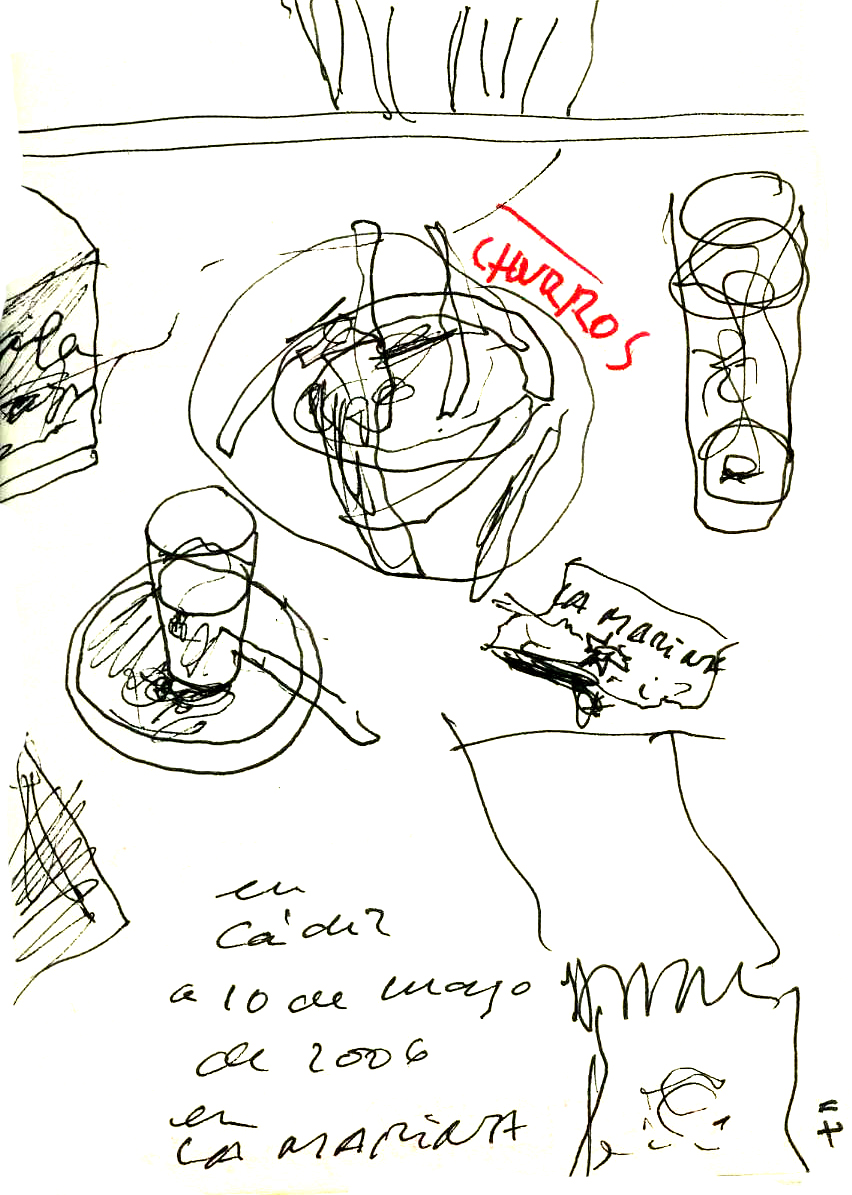 CHURROS
LA MARINA
en
Cádiz
a 10 de mayo
de 2006
en
LA MARINA